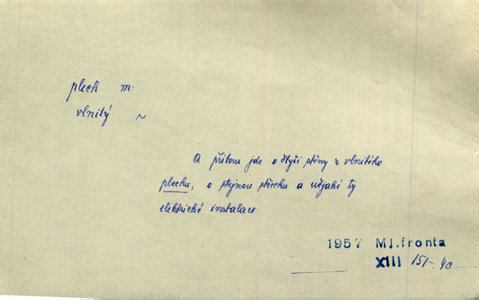 plech m.
vlnitý ~
A přitom jde o čtyři stěny z vlnitého
plechu, o stejnou střechu a nějaké ty
elektrické instalace
1957 Ml.fronta
XIII 151-